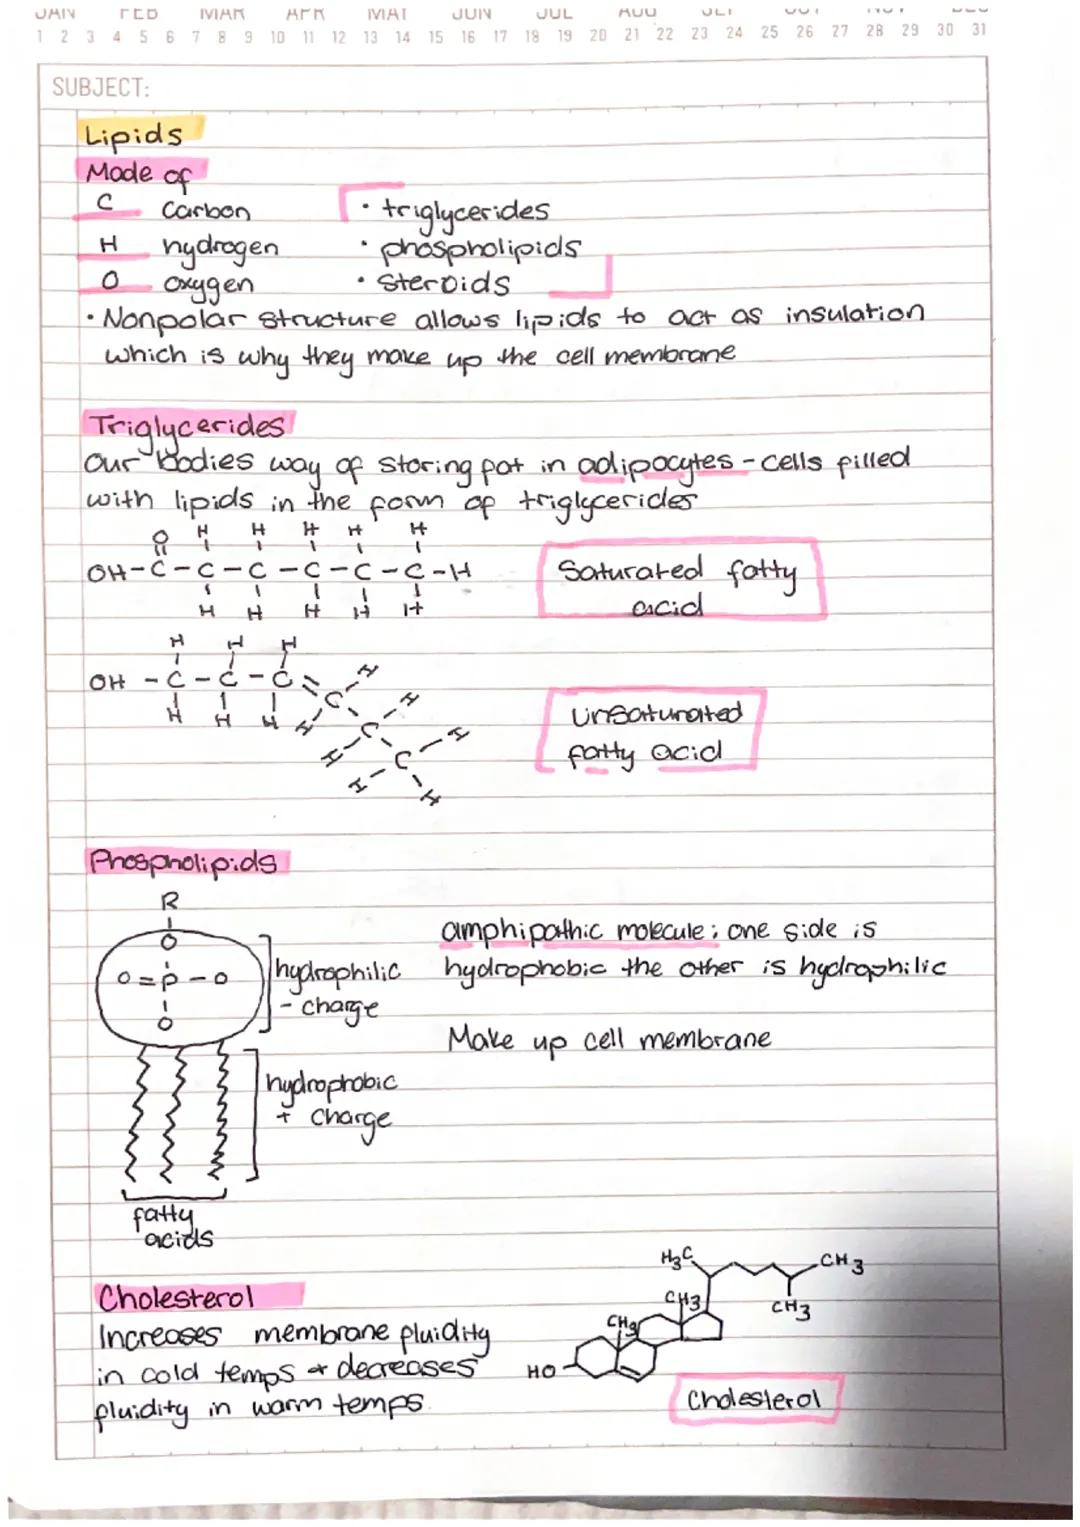 JAN FEB MAR APR MAY JUN JUL AUG SEP OCT NOV DEC
1 2 3 4 5 6 7 8 9 10 11 12 13 14 15 16 17 18 19 20 21 22 23 24 25 26 27 28 29 30 31
SUBJECT:
Lipids
Made of
C Carbon
H hydrogen
O oxygen
• triglycerides
• phospholipids
• steroids
• Nonpolar structure allows lipids to act as insulation
which is why they make up the cell membrane
Triglycerides
Our bodies way of storing fat in adipocytes - cells filled
with lipids in the form of triglycerides
O H H H H H
OH-C-C-C-C-C-C-H
H H H H H
Saturated fatty
acid
H H H
OH-C-C-C=C H
H H H H C H
H C H
H H
Unsaturated
fatty acid
Phospholipids
R
O
O=P-O
O
hydrophilic
- charge
hydrophobic
+ charge
fatty
acids
amphipathic molecule; one side is
hydrophobic the other is hydrophilic
Make up cell membrane
Cholesterol
Increases membrane fluidity
in cold temps + decreases
fluidity in warm temps
H3C
CH3
CH3
CH3
CH3
HO
Cholesterol